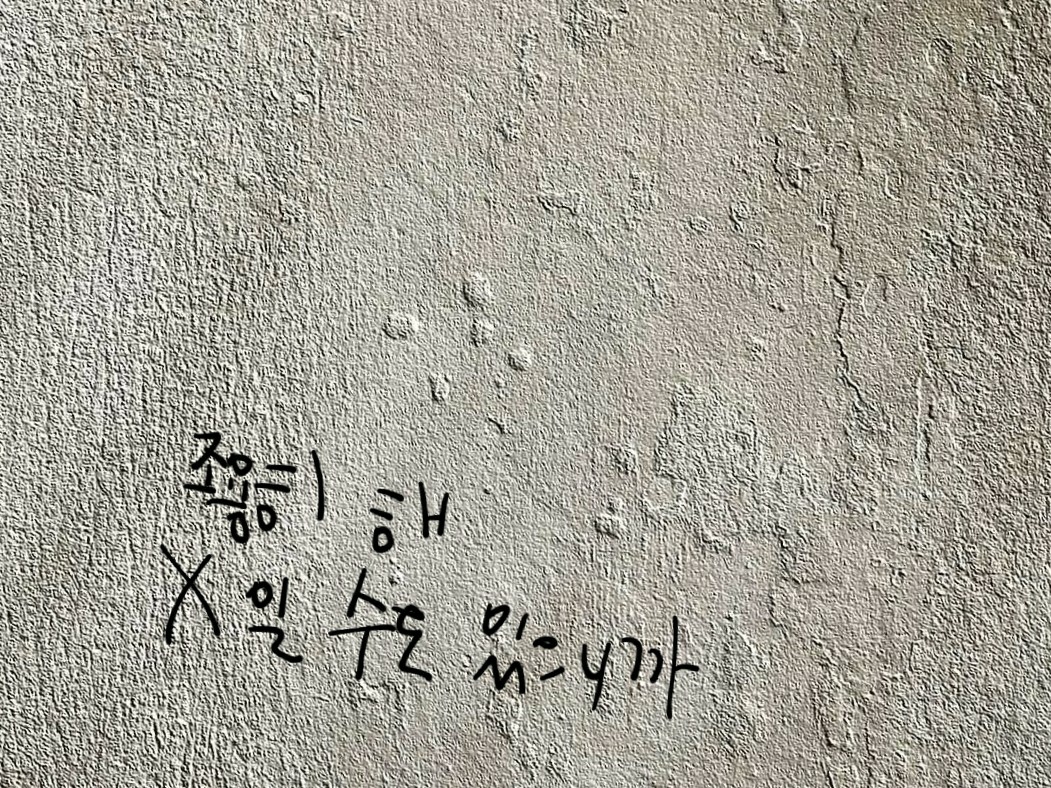 조용히 해
X일 수도 있으니까